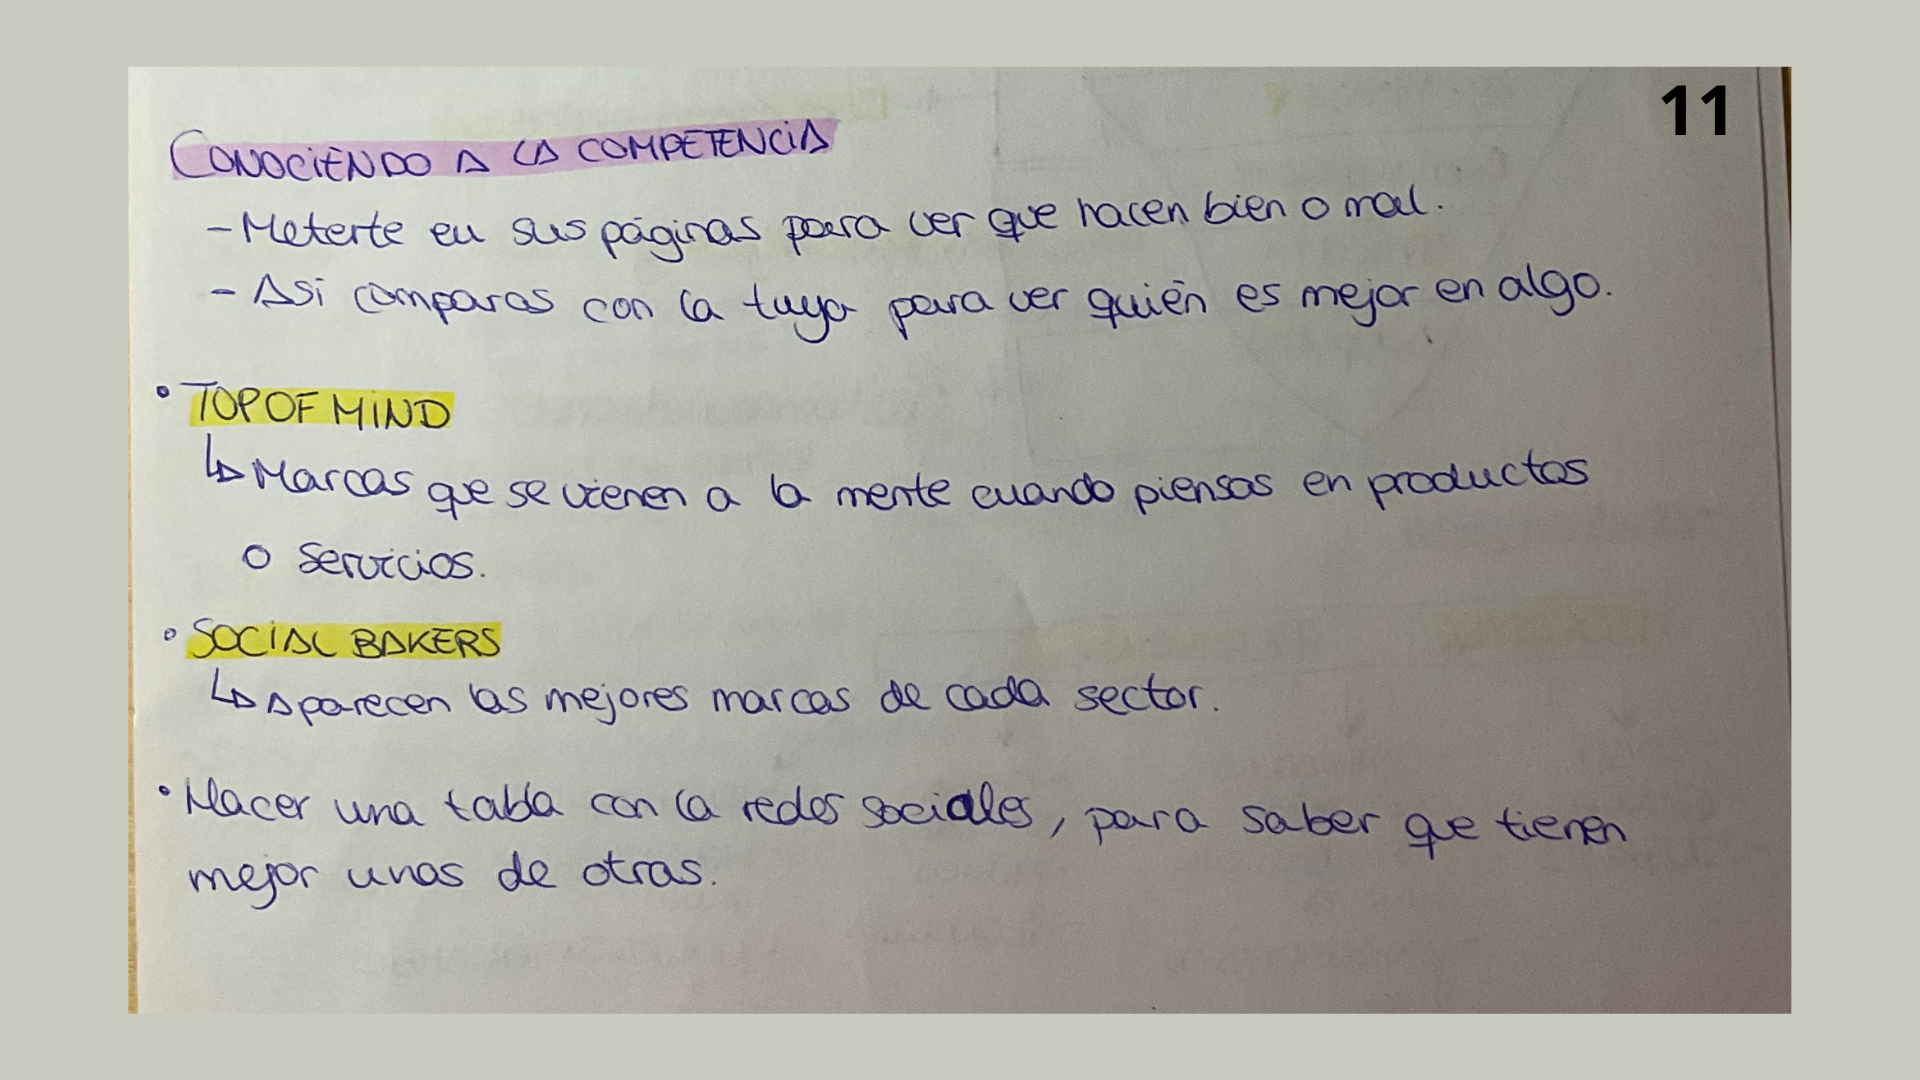 11
CONOCIENDO A LA COMPETENCIA
- Meterte en sus páginas para ver que hacen bien o mal.
- Asi comparas con la tuya para ver quién es mejor en algo.
• TOP OF MIND
↳ Marcas que se vienen a la mente cuando piensas en productos
o servicios.
• SOCIAL BAKERS
↳ Aparecen las mejores marcas de cada sector.
• Hacer una tabla con la redes sociales, para saber que tienen
mejor unas de otras.